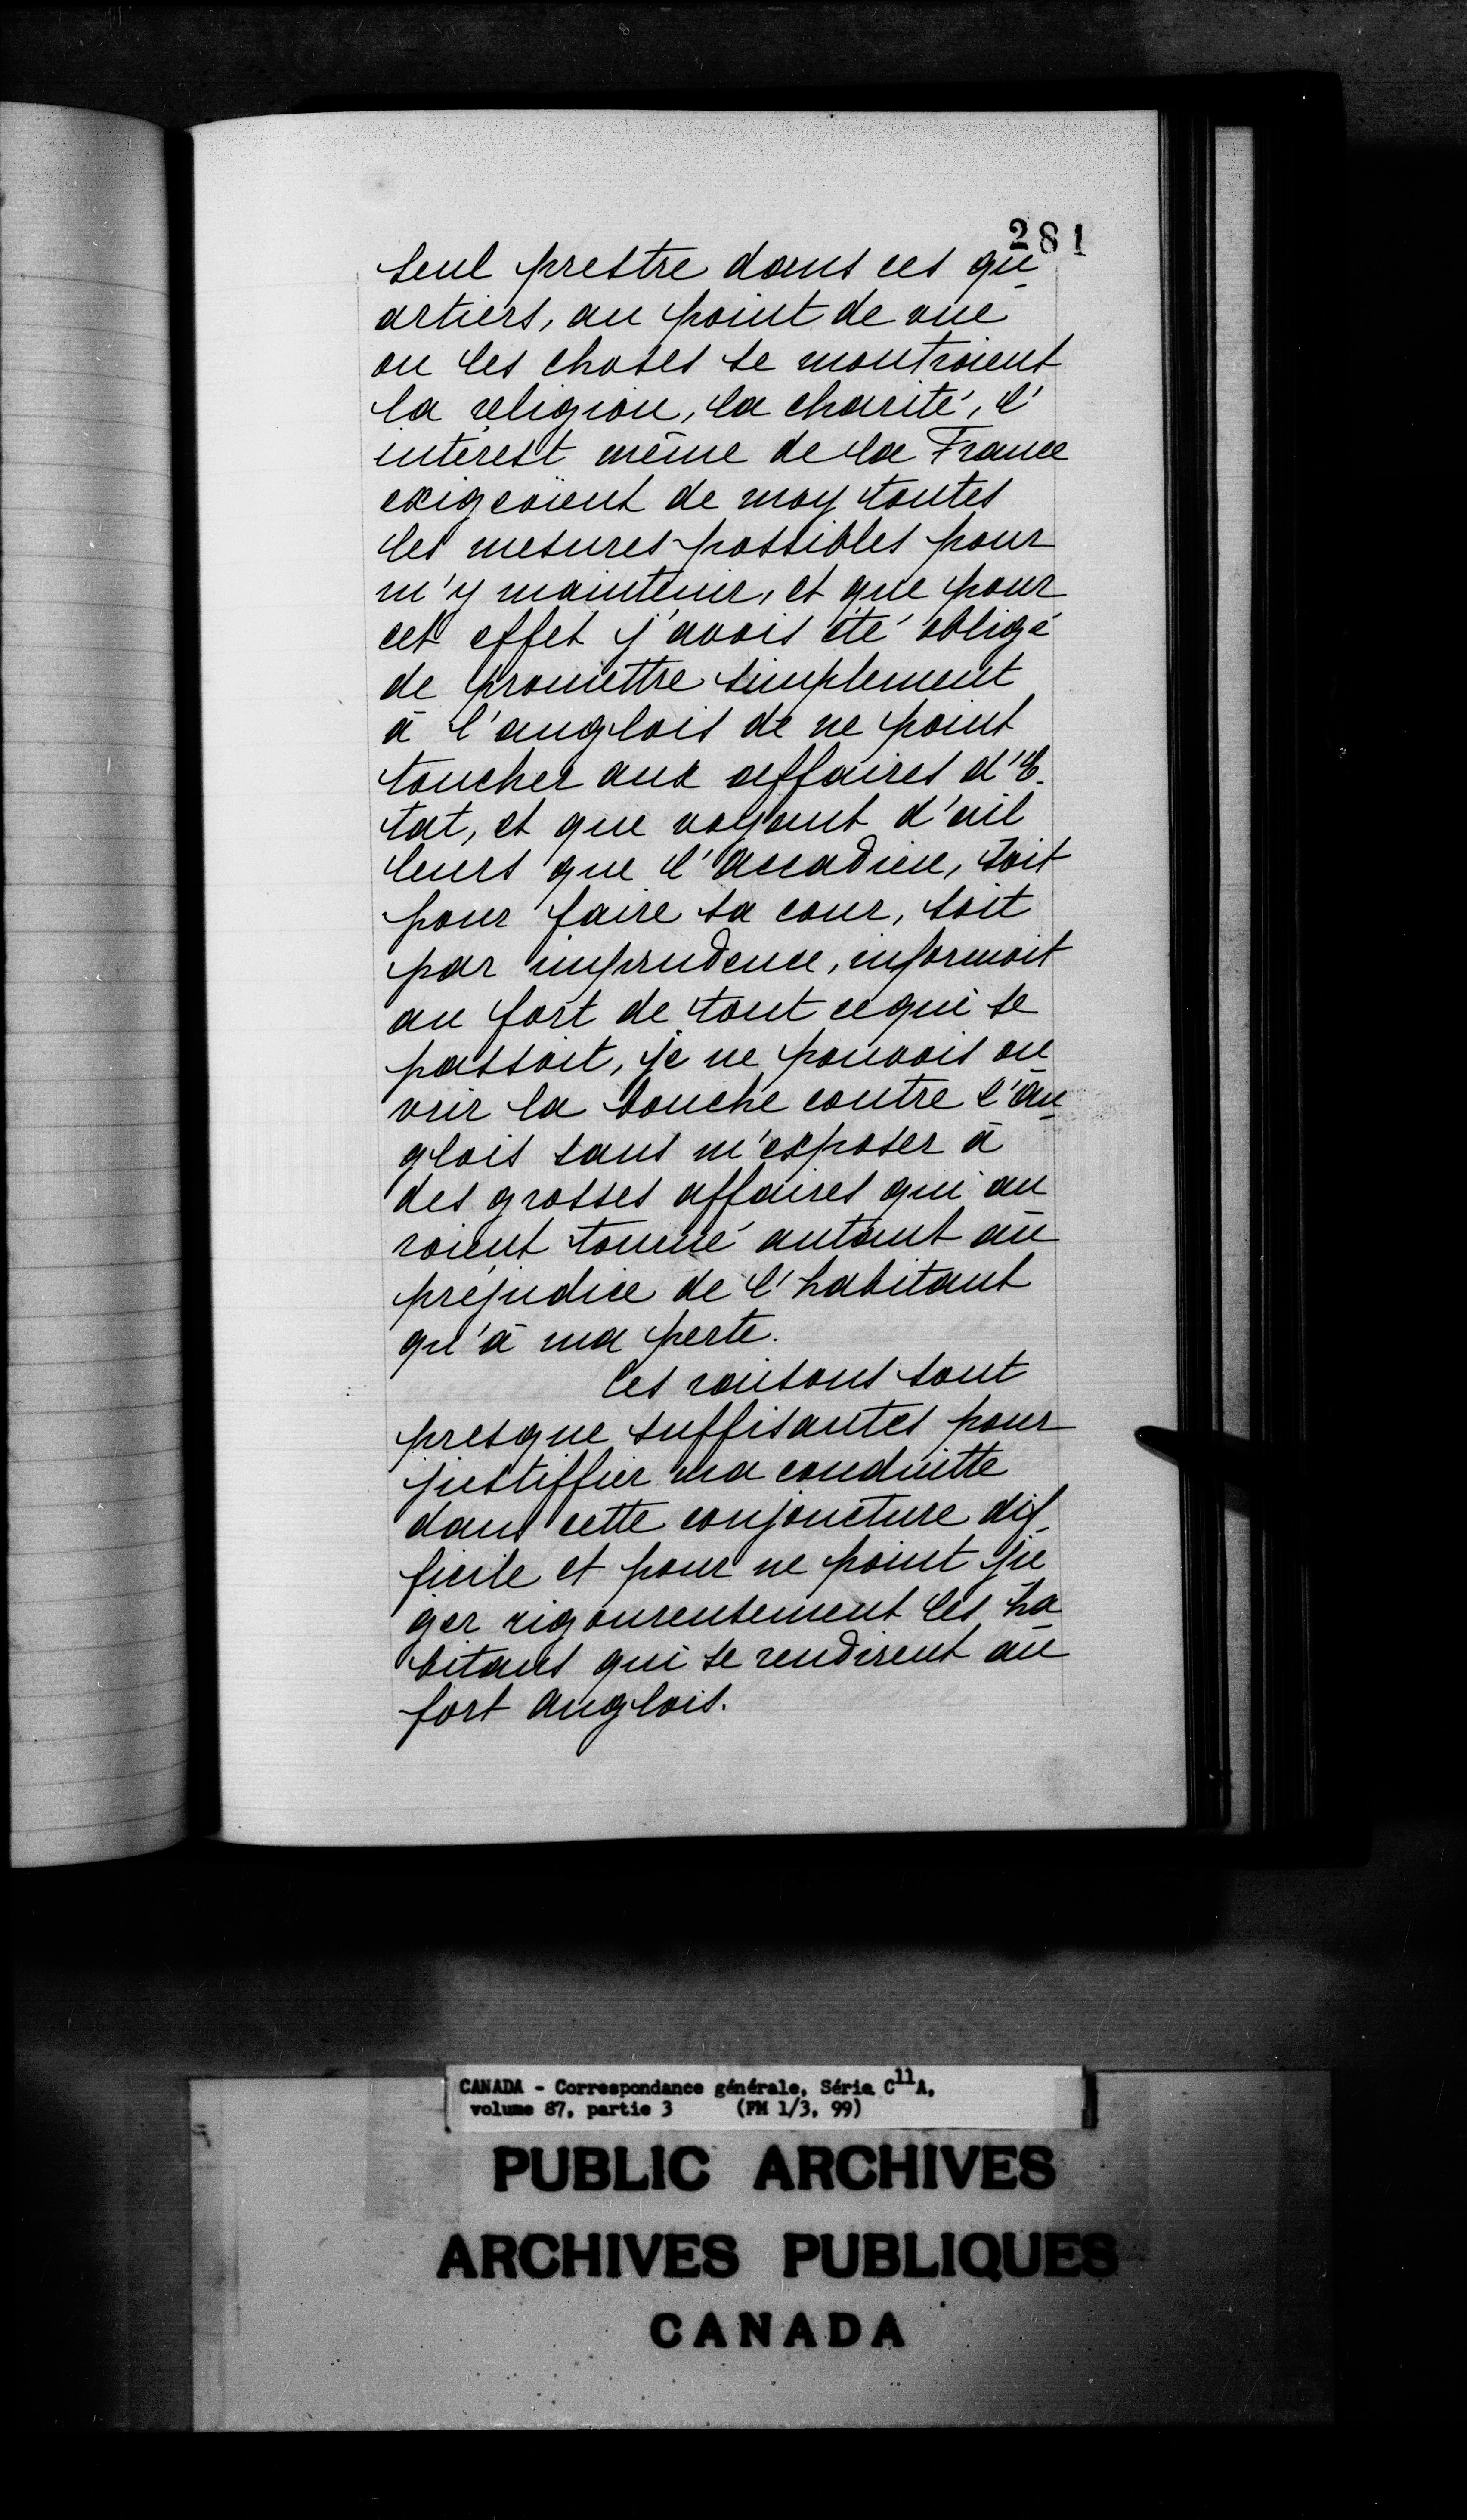 281
seul prestre dans ces qu-
artiers, au point de vue
ou les choses se montroient
la religion, la charité, l'
intérest même de la France
exigeoient de moy toutes
les mesures possibles pour
m'y maintenir, et que pour
cet effet j'avois été obligé
de promettre simplement
à l'anglois de ne point
toucher aux affaires d'E-
tat, et que voyant d'ail
leurs que l'accadien, soit
pour faire sa cour, soit
par imprudence, informoit
au fort de tout ce qui se
passoit, je ne pouvois ou
vrir la bouche contre l'an-
glois sans m'exposer à
des grosses affaires qui au
roient tourné autant au
préjudice de l'habitant
qu'à ma perte.
Ces raisons sont
presque suffisantes pour
justiffier ma conduitte
dans cette conjoncture dif-
ficile et pour ne point ju
ger rigoureusement les ha-
bitans qui se rendirent au
fort anglois.
CANADA - Correspondance générale, Série C11A,
volume 87, partie 3 (FM 1/3, 99)
PUBLIC ARCHIVES
ARCHIVES PUBLIQUES
CANADA